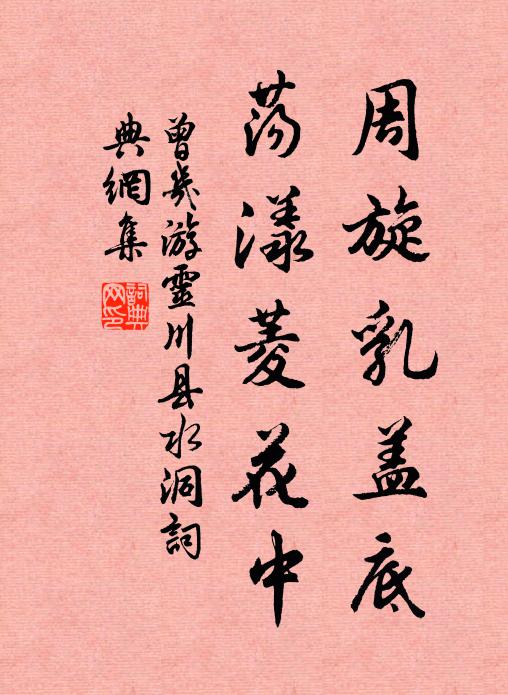 周旋乳盖底
荡漾菱花中
曾几游靈川县水洞詞
典網集
詞典
网印